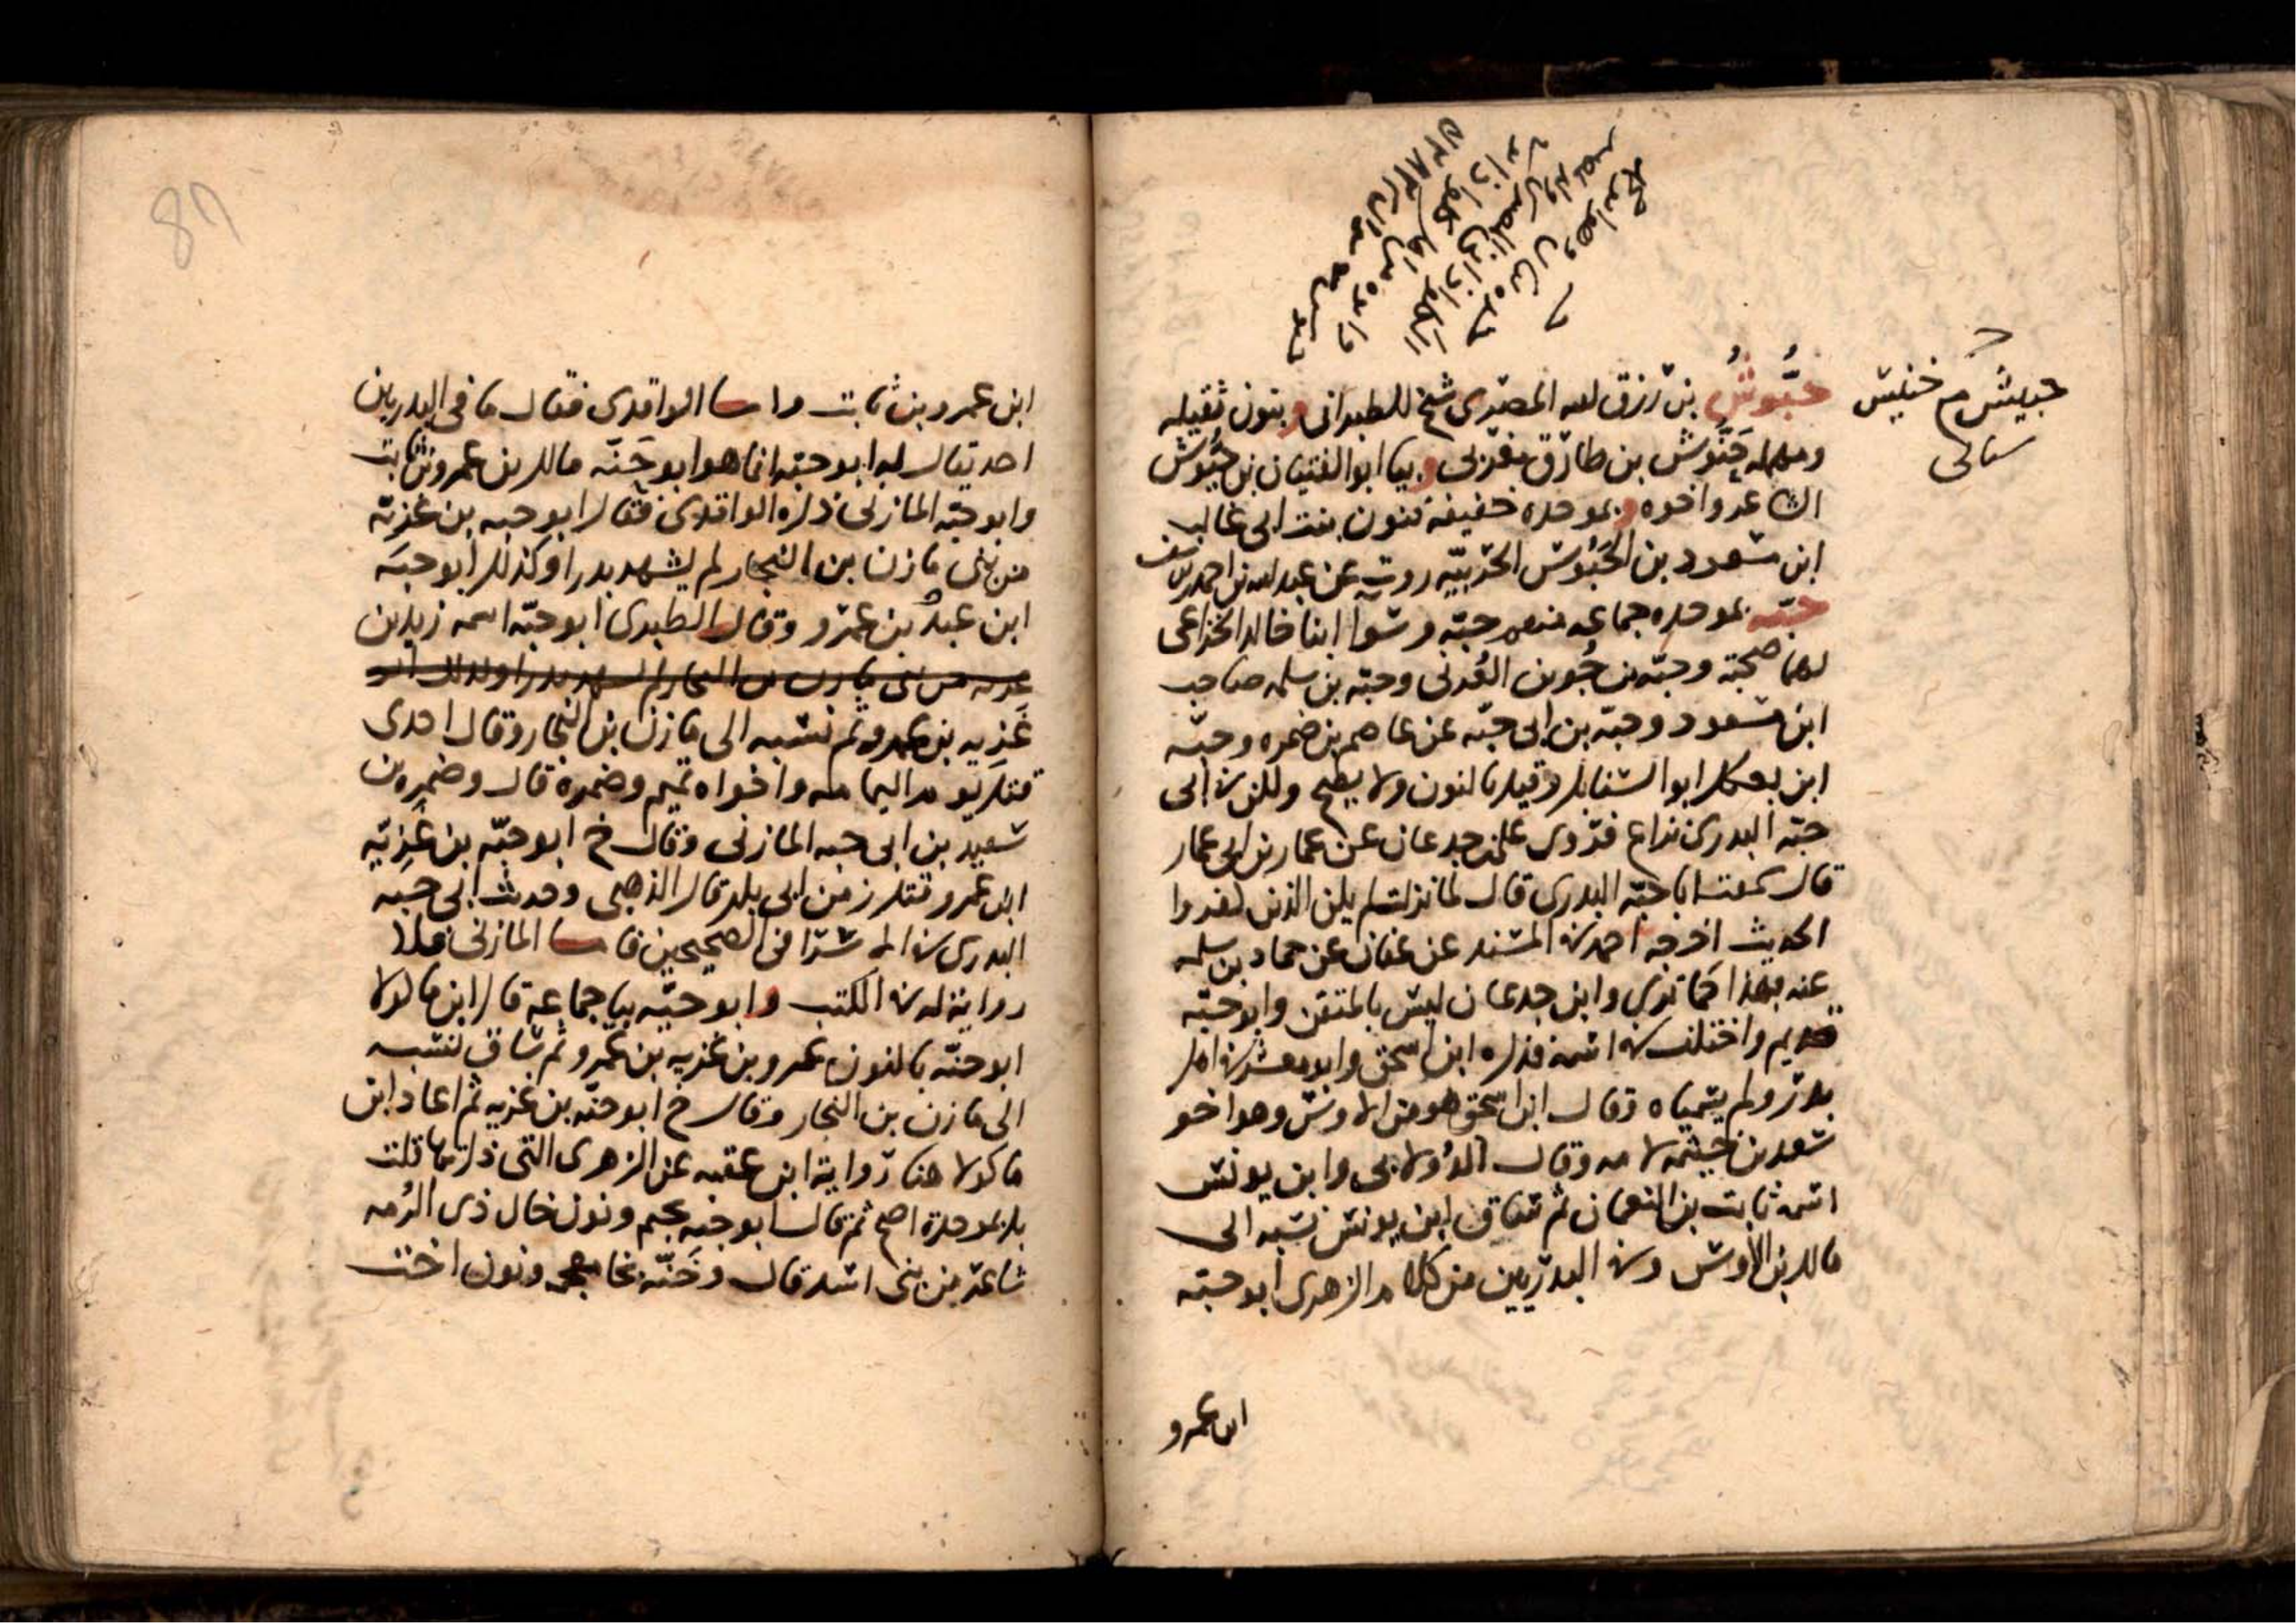 حبيش م خنيس
سيأتي
حَبُّوشُ بن رزق الله المصري شيخ للطبراني وبنون ثقيلة
ومهملة حَنُّوس بن طارق مغربي وبيا ابو الفتيان بن حَيُّوس
الشاعر واخوه وبموحدة خفيفة فنون بنت ابي غالب
ابن مسعود بن الحَبُوس الحربيّه روت عن عبد الله بن احمد بن يوسف
حبّه بموحده جماعه منهم حبّه وسوا ابنا خالد الخزاعي
لهما صحبة وحبّه بن جُوين العُرني وحبّه بن سلمه صاحب
ابن مسعود وحبّه بن ابي حبّه عن عاصم بن ضمره وحبّه
ابن بعكك ابو السنابل وقيل بالنون ولا يصح ولكن في ابي
حبّه البدري نزاع فروى علي بن جدعان عن عمار بن ابي عمار
قال سمعت ابا حبّه البدري قال لما نزلت لم يكن الذين كفروا
الحديث اخرجه احمد في المسند عن عفان عن حماد بن سلمه
عنه بهذا كما ترى وابن جدعان ليس بالمتقن وابو حبّه
قديم واختلف في اسمه فذكره ابن اسحق وابو معشر في اهل
بدر ولم يسمياه وقال ابن اسحق هو من الاوس وهو اخو
سعد بن خيثمه لامه وقال الدُولابي وابن يونس
اسمه ثابت بن النعمان ثم ساق ابن يونس نسبه الى
مالك بن الاوس وفي البدريين من كلام الزهري ابو حبّه
ابن عمرو
87
ابن عمرو بن ثابت واما الواقدي فقال ما في البدريين
احد يقال له ابو حبّه انما هو ابو حَنّه مالك بن عمرو بن ثابت
وابو حبّه المازني ذكره الواقدي فقال ابو حبه بن غزيّه
من بني مازن بن النجار لم يشهد بدرا وكذلك ابو حبّه
ابن عبد بن عمرو وقال الطبري ابو حبّه اسمه زيد بن
غزيه من بني مازن بن النجار لم يشهد بدرا وكذلك ابو
غَزِيه بن عمرو ثم نسبه الى مازن بن النجار وقال احدى
قتل يوم اليمامه واخواه تميم وضمرة قال وضمره بن
سعيد بن ابي حبه المازني وقال خ ابو حبّه بن غَزِيّه
ابن عمرو قتل زمن ابي بكر قال الذهبي وحديث ابي حبه
البدري في الاسرا في الصحيحين فاما المازني فلا
رواية له في الكتب وابو حيّه بيا جماعة قال ابن ماكولا
ابو حنّه بالنون عمرو بن غزيه بن عمرو ثم ساق نسبه
الى مازن بن النجار وقال خ ابو حنّه بن غزيه ثم اعاد ابن
ماكولا هنا رواية ابن عقبه عن الزهري التي ذكرتها قلت
بل بموحدة اصح ثم قال ابو جنه بجيم ونون خال ذي الرُمه
شاعر من بني اسد قال وخَنّه بخا معجمه ونون اخت